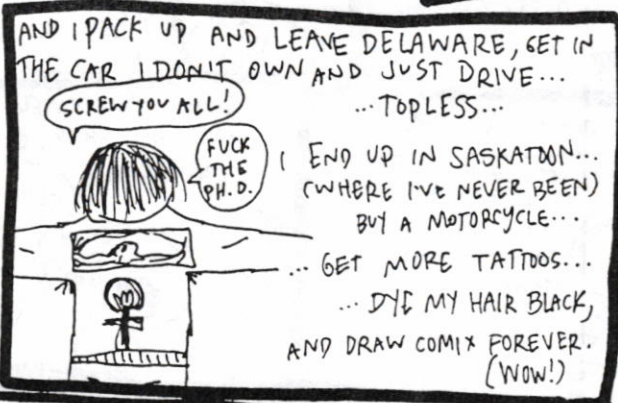 AND I PACK UP AND LEAVE DELAWARE, GET IN
THE CAR I DON'T OWN AND JUST DRIVE...
...TOPLESS...
SCREW YOU ALL!
FUCK
THE
PH.D.
I END UP IN SASKATOON...
(WHERE I'VE NEVER BEEN)
BUY A MOTORCYCLE...
... GET MORE TATTOOS...
... DYE MY HAIR BLACK,
AND DRAW COMIX FOREVER.
(WOW!)